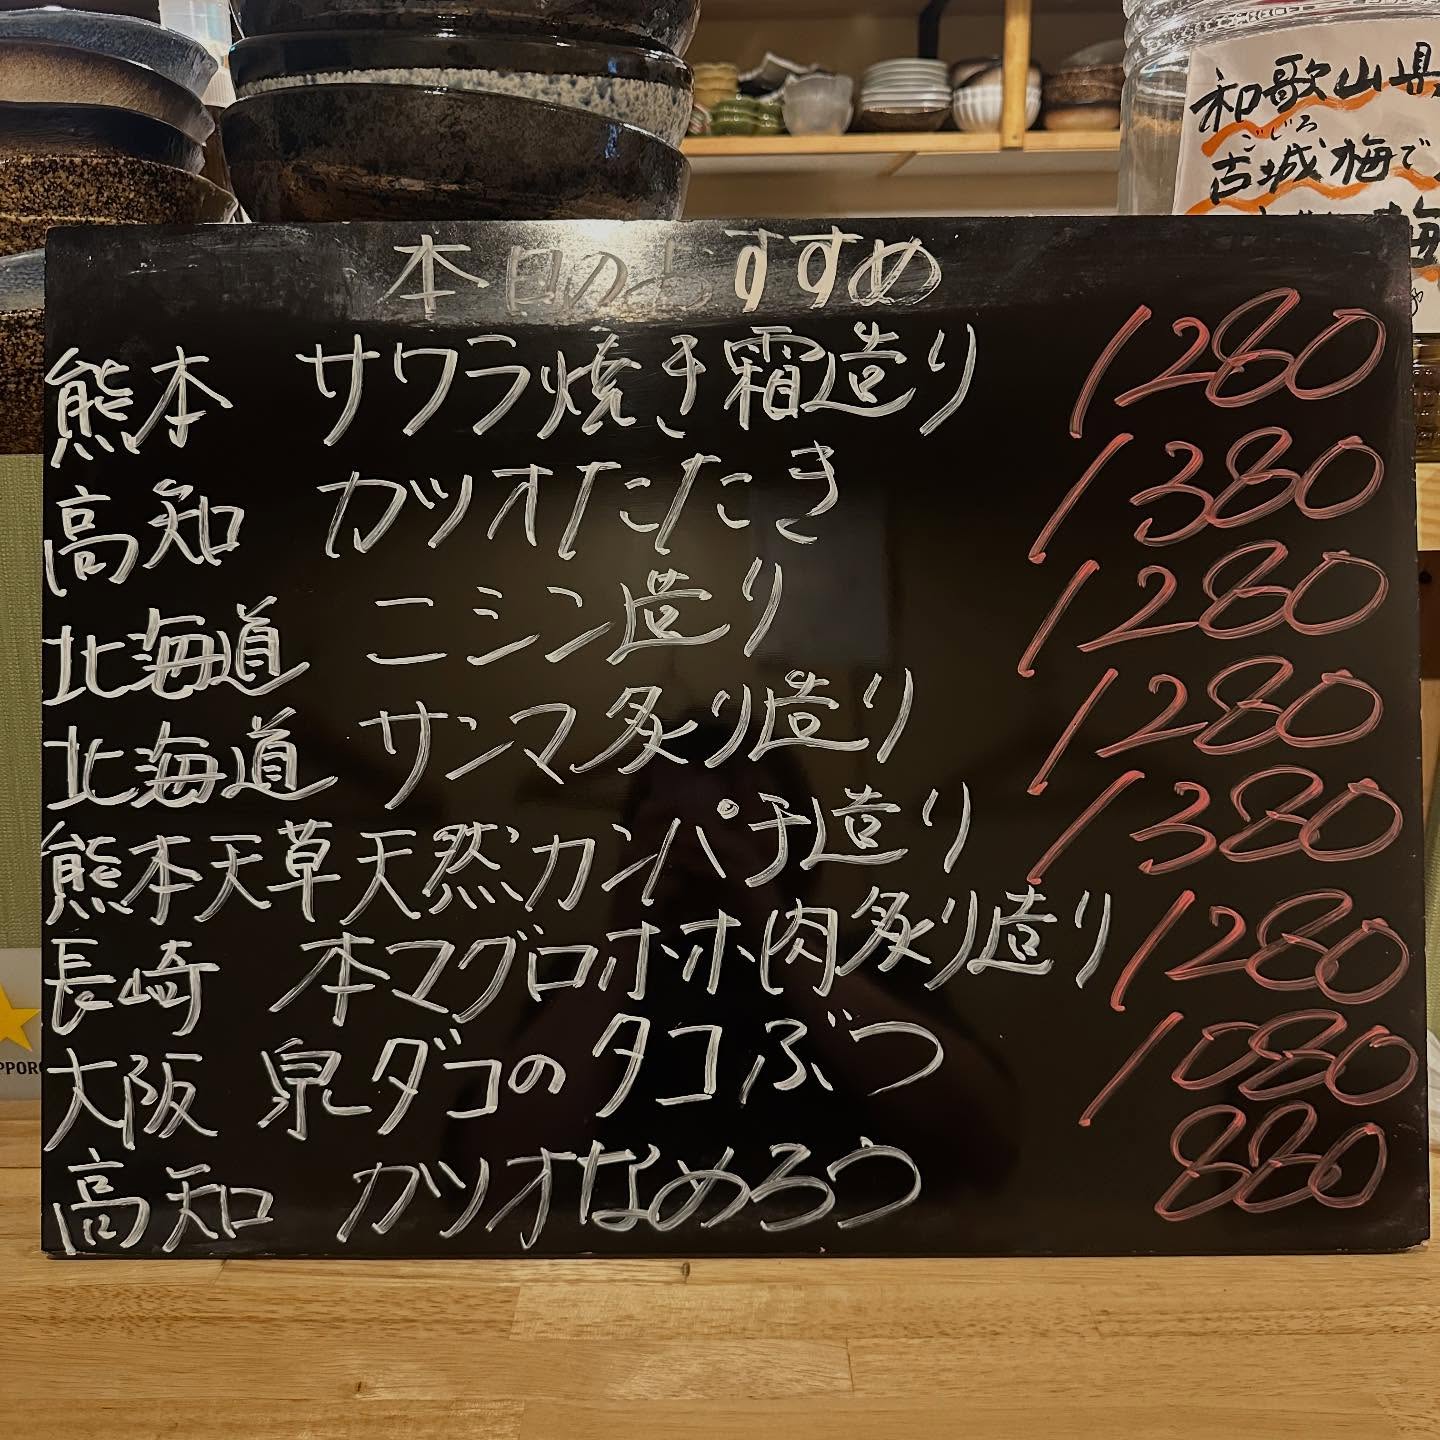 本日のおすすめ
熊本 サワラ焼き霜造り 1280
高知 カツオたたき 1380
北海道 ニシン造り 1280
北海道 サンマ炙り造り 1280
熊本天草天然カンパチ造り 1380
長崎 本マグロホホ肉炙り造り 1280
大阪 泉ダコのタコぶつ 1080
高知 カツオなめろう 880
和歌山県
ごじろ
古城梅で
梅
PPORO